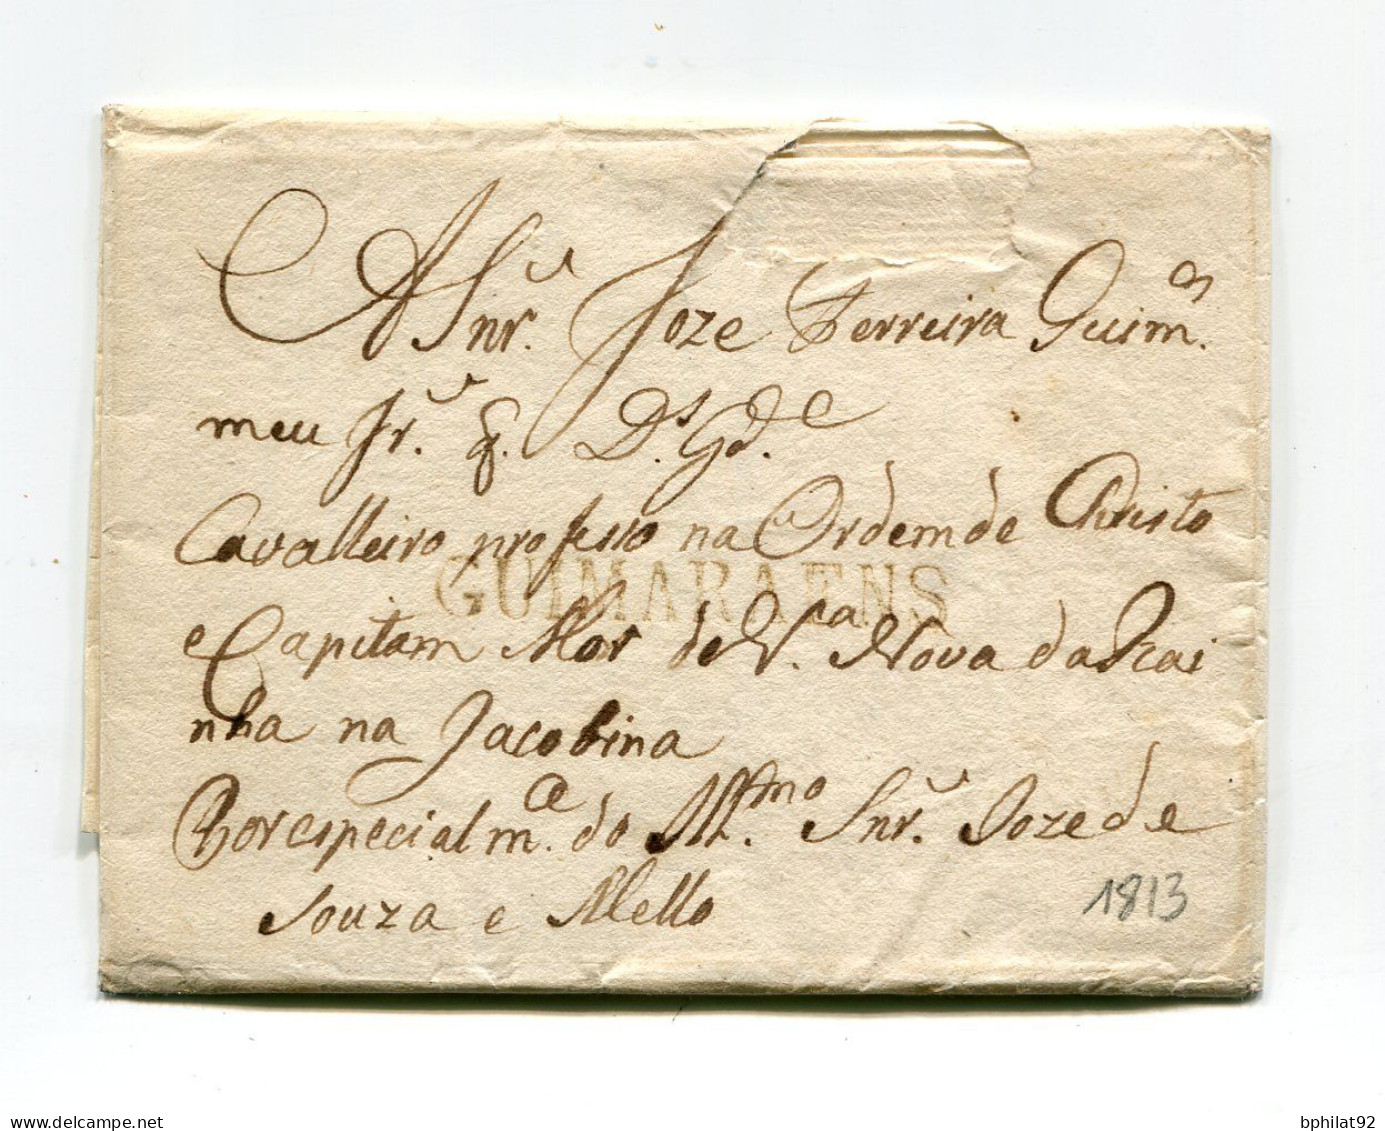 A Snr. Joze Ferreira Guim.es
meu Jr. q. D.s G.de
Cavalleiro professo na Ordem de Christo
GUIMARAENS
e Capitam Mor de V.a Nova da Rai
nha na Jacobina
Por especial m.ce do Ill.mo Snr. Joze de
Souza e Mello
1813
delcampe.net
bphilat92